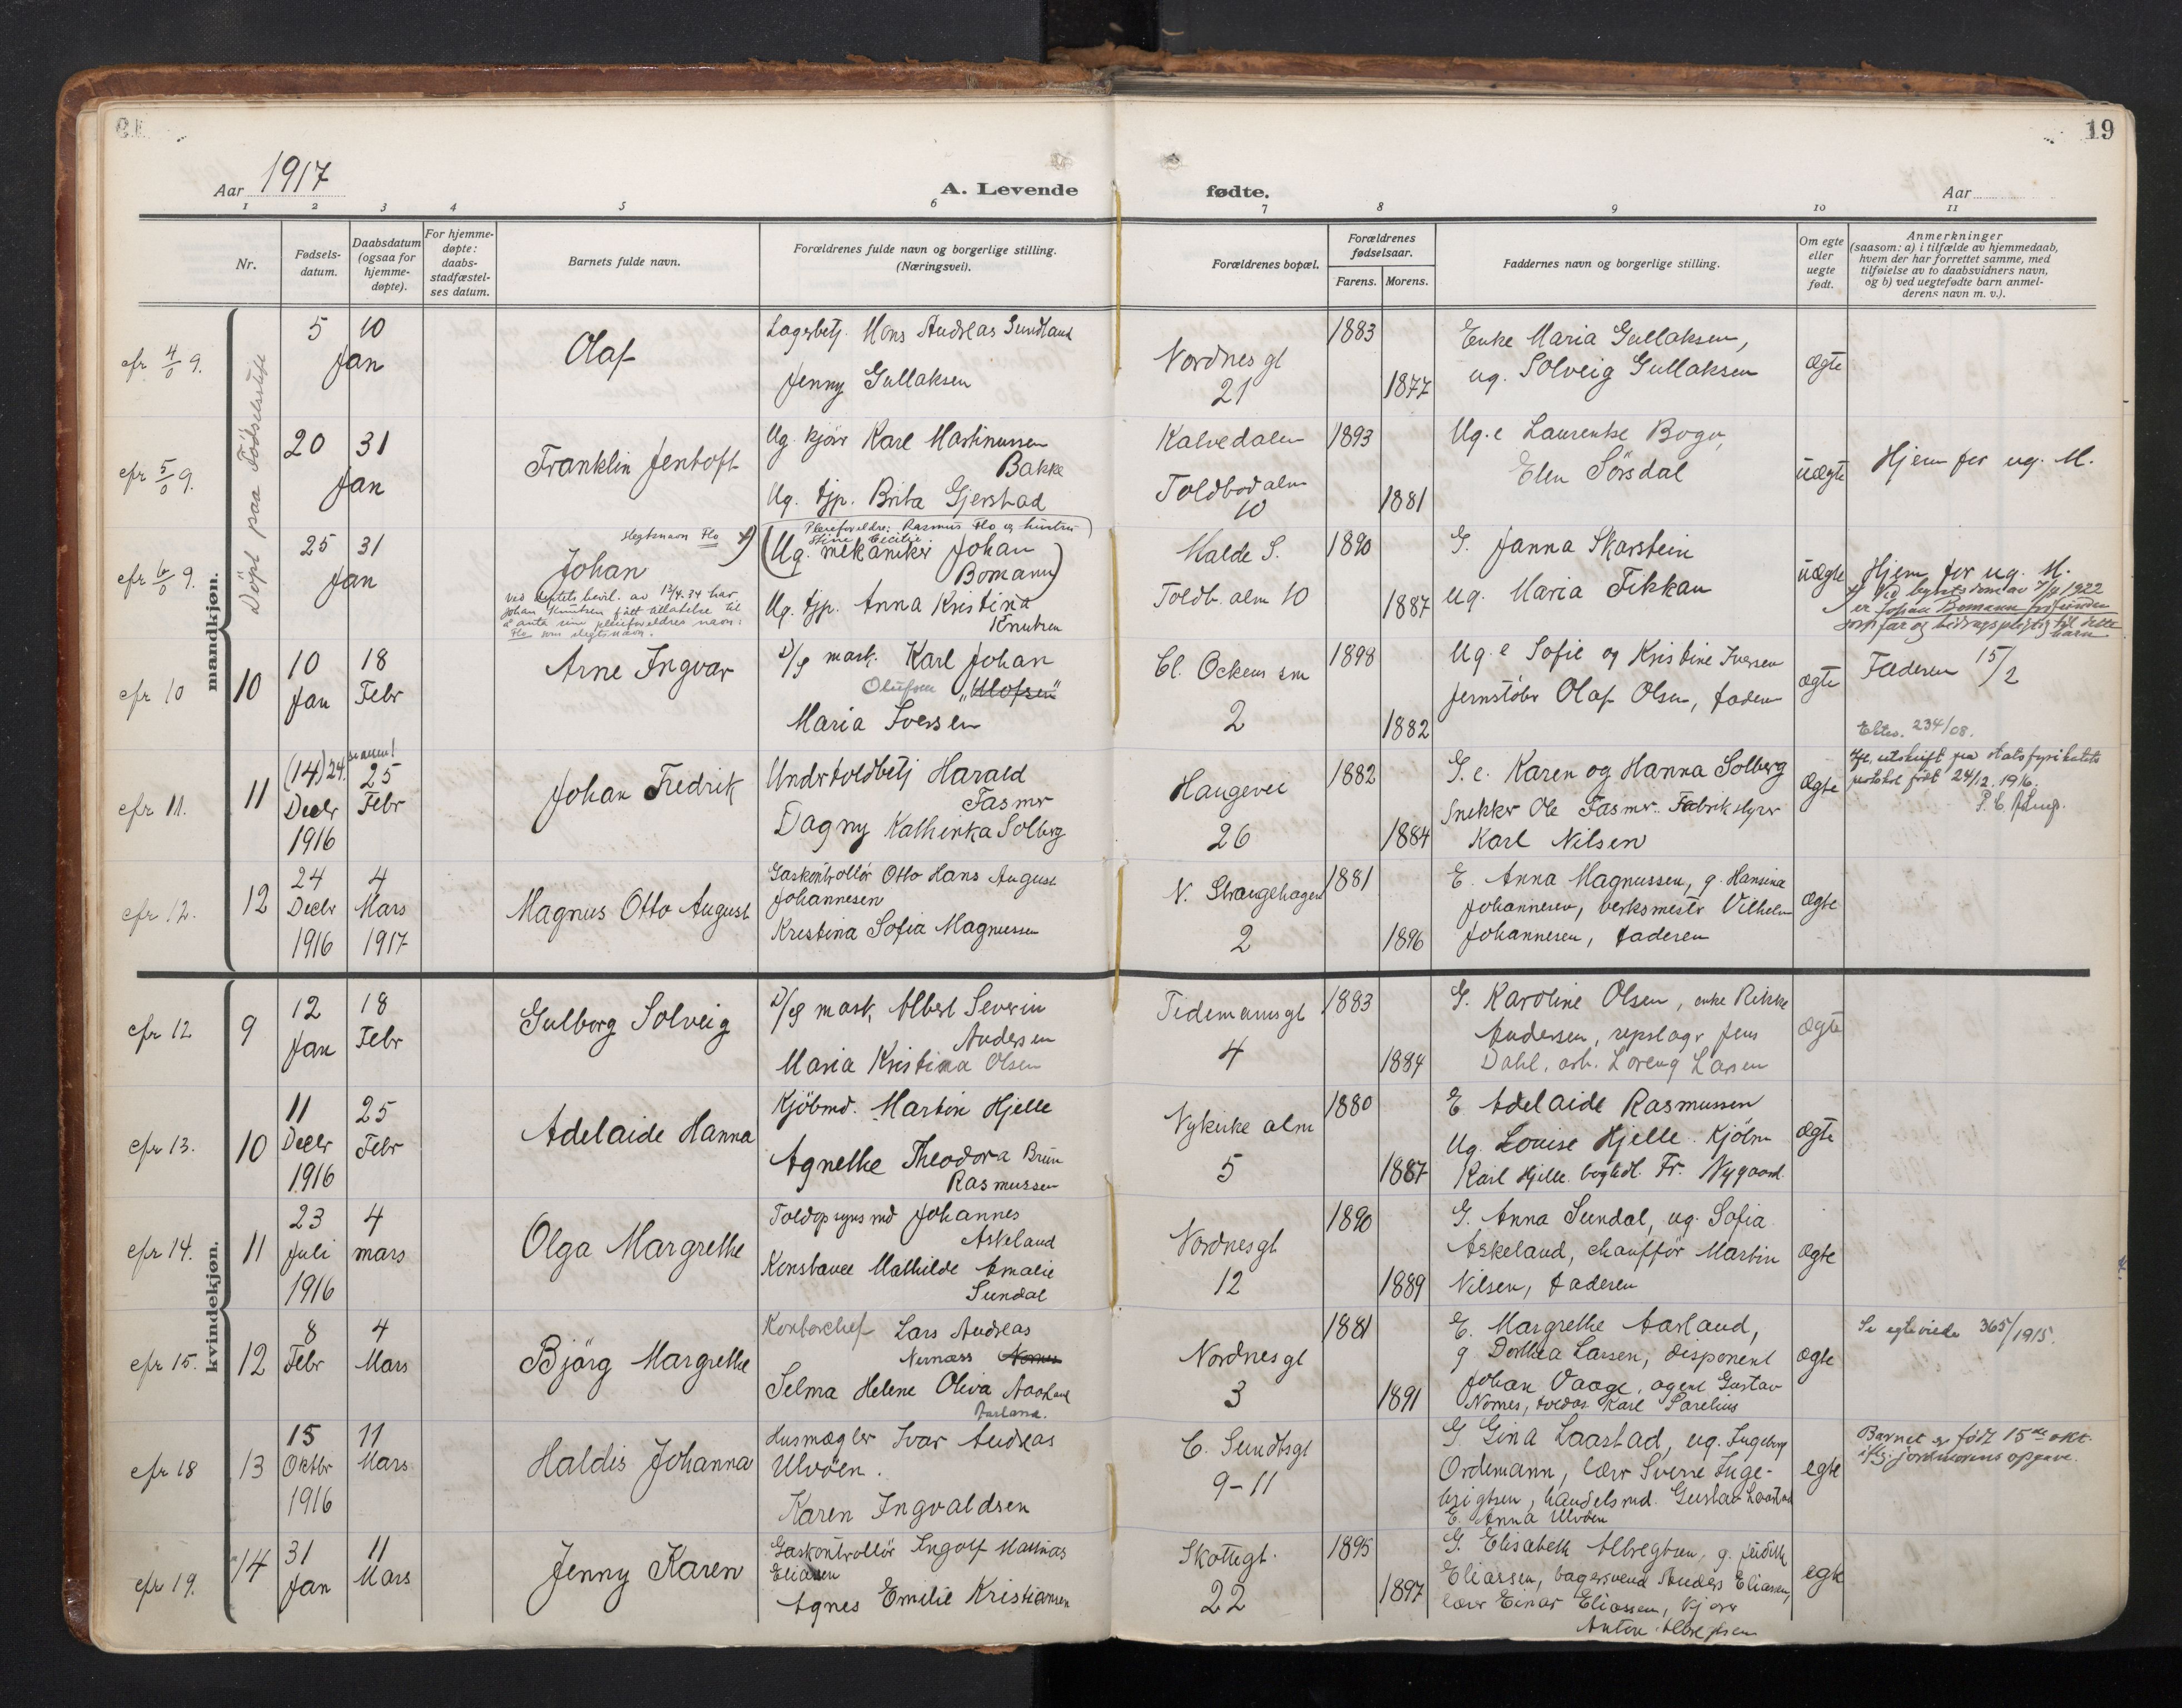 19
Aar 1917
A. Levende fødte.
Aar
1 2 3 4 5 6 7 8 9 10 11
Nr.
Fødsels-
datum.
Daabsdatum
(ogsaa for
hjemme-
døpte).
For hjemme-
døpte:
daabs-
stadfæstel-
ses datum.
Barnets fulde navn.
Forældrenes fulde navn og borgerlige stilling.
(Næringsvei).
Forældrenes bopæl.
Forældrenes
fødselsaar.
Farens. Morens.
Faddernes navn og borgerlige stilling.
Om egte
eller
uegte
født.
Anmerkninger
(saasom: a) i tilfælde av hjemmedaab,
hvem der har forrettet samme, med
tilføielse av to daabsvidners navn,
og b) ved uegtefødte barn anmel-
derens navn m. v.).
mandkjøn.
Döpt paa Födselsstift
cfr 4/0 9.
5 10
Jan
Olaf
Lagerbetj. Mons Andreas Sundland
Jenny Gullaksen
Nordnesgt
21
1883
1877
Enke Maria Gullaksen,
ug. Solveig Gullaksen
Ægte
cfr 5/0 9.
20 31
Jan
Franklin Jentoft
Ug. kjörer Karl Martinussen
Bakke
Ug. tjp. Brita Gjerstad
Kalvedalen
Toldbodalm
10
1893
1881
Ug.e Laurentse Bogo,
Elen Sörsdal
uægte
Hjem for ug. M.
cfr 6/0 9.
25 31
Jan
slegtsnavn Flo
Johan
ved amtets bevil. av 13/4.34 har
Johan Knutsen fått tillatelse til
å anta sine pleieforeldres navn:
Flo som slegtsnavn.
Pleieforeldre: Rasmus Flo og hustru
Stine Cecilie.
(Ug. mekaniker Johan
Bomann)
Ug. tjp. Anna Kristina
Knutsen
Malde S.
Toldb. alm 10
1890
1887
G. Janna Skarstein
ug. Maria Fikkan
uægte
Hjem for ug. M.
Ved bygtsdom av 7/4 1922
er Johan Bomann
som far og bidragspligtig til dette
barn
cfr 10
10
10 18
Jan Febr
Arne Ingvar
D/S mask. Karl Johan
Olufsen "Ulofsen"
Maria Iversen
Cl. Ockens sm
2
1898
1882
Ug.e Sofie og Kristine Iversen
jernstöber Olaf Olsen, faderen
ægte
Faderen 15/2
cfr 11.
11
(14) 24. se anm!
25
Decbr Febr
1916
Johan Fredrik
Undertoldbetj Harald
Fasmer
Dagny Kathinka Solberg
Haugevei
26
1882
1884
G.e. Karen og Hanna Solberg
Snekker Ole Fasmer. Fabrikstyrer
Karl Nilsen
Ægte
Ektev. 234/08.
Efr. utskrift fra statsfysikatets
protokol född 24/12. 1916.
cfr 12.
12
24 4
Decbr Mars
1916 1917
Magnus Otto August
Gaskontrollör Otto Hans August
Johannesen
Kristina Sofia Magnussen
N. Strangehagen
2
1881
1896
E. Anna Magnussen, g. Hansina
Johannesen, verksmester Vilhelm
Johannesen, faderen
Ægte
kvindekjøn.
cfr 12
9
12 18
Jan Febr
Gulborg Solveig
D/S mask. Albert Severin
Andersen
Maria Kristina Olsen
Tidemansgt
4
1883
1884
G. Karoline Olsen, enke Rikke
Andersen, repslager Jens
Dahl, arb. Loreng Larsen
Ægte
cfr 13.
10
11 25
Decbr Febr
1916
Adelaide Hanna
Kjöbmd. Martin Hjelle
Agnethe Theodora Brun
Rasmussen
Nykirke alm
5
1880
1887
E Adelaide Rasmussen
Ug. Louise Hjelle. Kjöbm
Karl Hjelle. bogtedl. Fr. Nygaard.
Ægte
cfr 14.
11
23 4
Juli mars
1916
Olga Margrethe
Toldopsynsmd Johannes
Askeland
Konstance Mathilde Amalie
Sundal
Nordnesgt
12
1890
1889
G. Anna Sundal, ug. Sofia
Askeland, chaufför Martin
Nilsen, faderen
Ægte
cfr 15.
12
8 4
Febr Mars
Björg Margrethe
Kontorchef Lars Andreas
Nernæss Nornes
Selma Helene Oliva Aarland
Aarland.
Nordnesgt
3
1881
1891
E. Margrethe Aarland,
g Dorthea Larsen, disponent
Johan Vaage, agent Gustav
Nornes, toldas. Karl Parelius
Ægte
Se egteviede 365/1915.
cfr 18
13
15 11
Oktbr Mars
1916
Haldis Johanna
Husmægler Ivar Andreas
Ulvöen.
Karen Ingvaldsen
C. Sundtsgt
9-11
G. Gina Laastad, ug. Ingeborg
Ordemann, lærer Sverre Inge-
brigtsen, handelsmd. Gustav Laastad
E. Anna Ulvöen
egte
Barnet er födt 15de okt.
iflg. jordmorens opgave.
cfr 19.
14
31 11
Jan Mars
Jenny Karen
Gaskontrollör Ingolf Mathias
Eliassen
Agnes Emilie Kristiansen
Skottegt.
22
1895
1897
G. Elisabeth Albregtsen, g. Judith
Eliassen, bagersvend Anders Eliassen,
lærer Einar Eliassen, kjører
Anton Albregtsen
egte